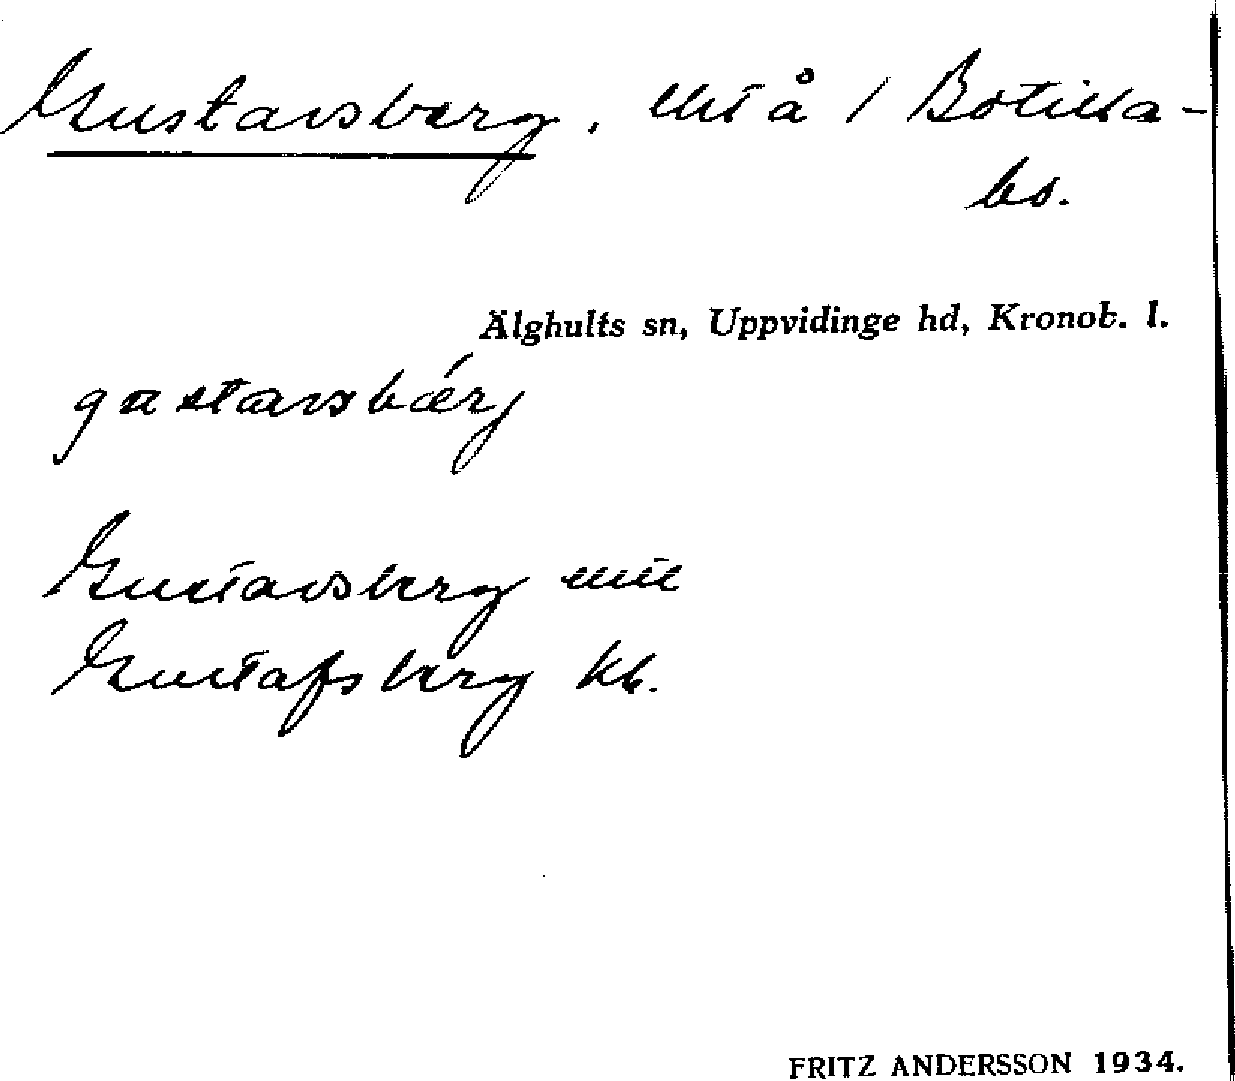 Gustavsberg, lht å 1 Botilla-
bo.
Älghults sn, Uppvidinge hd, Kronob. l.
gustavsbærj
Gustavsberg
Gustafsberg kb.
FRITZ ANDERSSON 1934.